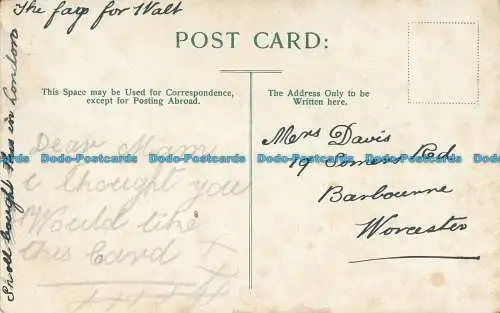 The fag for Walt
POST CARD:
This Space may be Used for Correspondence,
except for Posting Abroad.
The Address Only to be
Written here.
Dear Mam
i thought you
Would like
this Card
++++
Mrs Davis
19 Somers Rd
Barbourne
Worcester
bought this in London
Dodo-Postcards Dodo-Postcards Dodo-Postcards Dodo-Postcards Dodo-Postcards